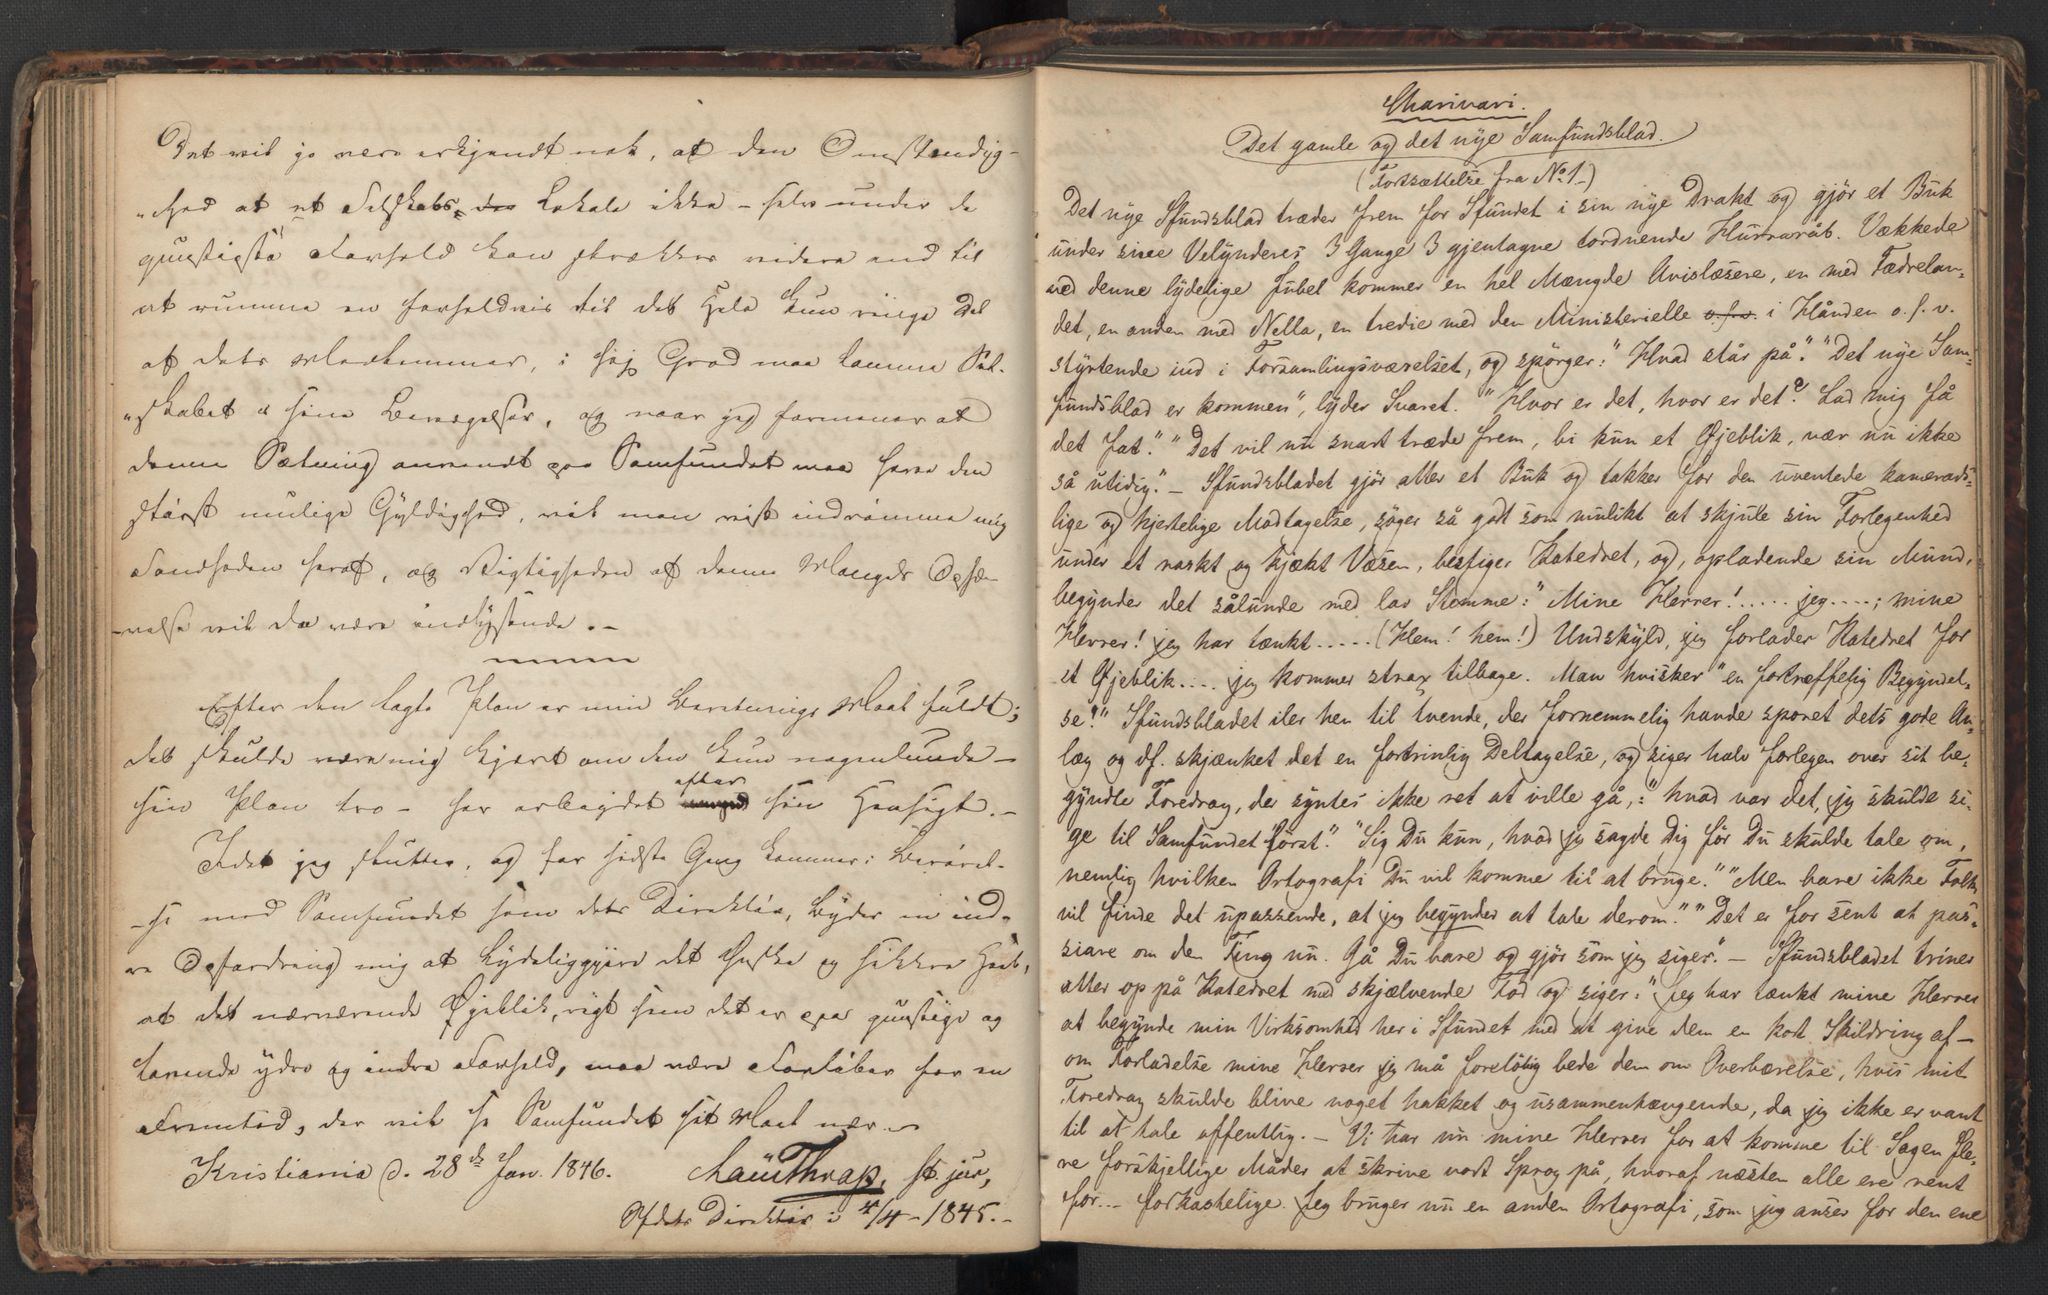 Det vil jo være erkjendt nok, at den Omstændig-
„hed at et Selskabs Lokale ikke – selv under de
gunstigste Forhold kan strække videre end til
at rumme en forholdvis til det Hele kun ringe Del
af dets Medlemmer, i høj Grad maa lamme Sel-
„skabet i sine Bevægelser, og naar jeg formener at
denne Sætning anvendt paa Samfundet maa have den
størst mulige Gyldighed, vil man vist indrømme mig
Sandheden heraf, og Vigtigheden af denne Mangels Ophæ-
-velse vil da være indlysende. –
Efter den lagte Plan er min Beretnings Maal fuldt;
det skulde være mig kjært om den kun nogenlunde –
sin Plan tro – har arbejdet efter sin Hensigt. –
Idet jeg slutter, og for sidste Gang kommer i Berørel-
-se med Samfundet som dets Direktør, byder en ind-
re Opfordring mig at tydeliggjøre det Ønske og sikkre Haab,
at det nærværende Øjeblik, rigt som det er paa gunstige og
lovende ydre og indre Forhold, maa være Forløber for en
Fremtid, der vil se Samfundet sit Maal nær. –
Kristiania d. 28de Jan. 1846.
Thrap, st. jur,
Sfdets Direktør i 4/4 – 1845. –
Charivari.
Det gamle og det nye Samfundsblad.
(Fortsættelse fra No 1 –)
Det nye Sfundsblad træder frem for Sfundet i sin nye Drakt og gjör et Buk
under sine Velynderes 3 Gange 3 gjentagne tordnende Hurraråb. Vækkede
ved denne lydelige Jubel kommer en hel Mængde Avislæsere, en med Fædrelan-
det, en anden med Nella, en tredie med den Ministerielle o.s.v. i Hånden o.s.v.
styrtende ind i Forsamlingsværelset, og spörger: "Hvad står på". "Det nye Sam-
fundsblad er kommen", lyder Svaret. "Hvor er det, hvor er det? Lad mig få
det fat". "Det vil nu snart træde frem, bi kun et Øjeblik, vær nu ikke
så utidig". – Sfundsbladet gjör atter et Buk og takker for den uventede kamerads-
lige og hjertelige Modtagelse, söger så godt som mulikt at skjule sin Forlegenhed
under et raskt og kjækt Væsen, bestiger Katedret, og, opladende sin Mund,
begynder det sålunde med lav Stemme: "Mine Herrer! ..... jeg ....; mine
Herrer! jeg har tænkt ..... (Hem! hem!) Undskyld, jeg forlader Katedret for
et Øjeblik .... jeg kommer strax tilbage. Man hvisker "en fortræffelig Begyndel-
se!" Sfundsbladet iler hen til tvende, der fornemmelig havde sporet dets gode An-
læg og df. skjænket det en fortrinlig Deltagelse, og siger halv forlegen over sit be-
gyndte Foredrag, der syntes ikke ret at ville gå,: "hvad var det, jeg skulde si-
ge til Samfundet först". "Sig Du kun, hvad jeg sagde Dig för Du skulde tale om,
nemlig hvilken Ortografi Du vil komme til at bruge." "Men bare ikke Folk
vil finde det upassende, at jeg begynder at tale derom." "Det er for sent at pas-
siare om den Ting nu. Gå Du bare og gjör som jeg siger". – Sfundsbladet triner
atter op på Katedret med skjælvende Fod og siger: "Jeg har tænkt mine Herrer
at begynde min Virksomhed her i Sfundet med at give dem en kort Skildring af –
om Forladelse mine Herrer jeg må forelöbig bede dem om Overbærelse, hvis mit
Foredrag skulde blive noget hakket og usammenhængende, da jeg ikke er vant
til at tale offentlig. – Vi har nu mine Herrer for at komme til Sagen fle-
re forskjellige Måder at skrive vort Sprog på, hvoraf næsten alle ere rent
for... forkastelige. Jeg bruger nu en anden Ortografi, som jeg anser for den ene